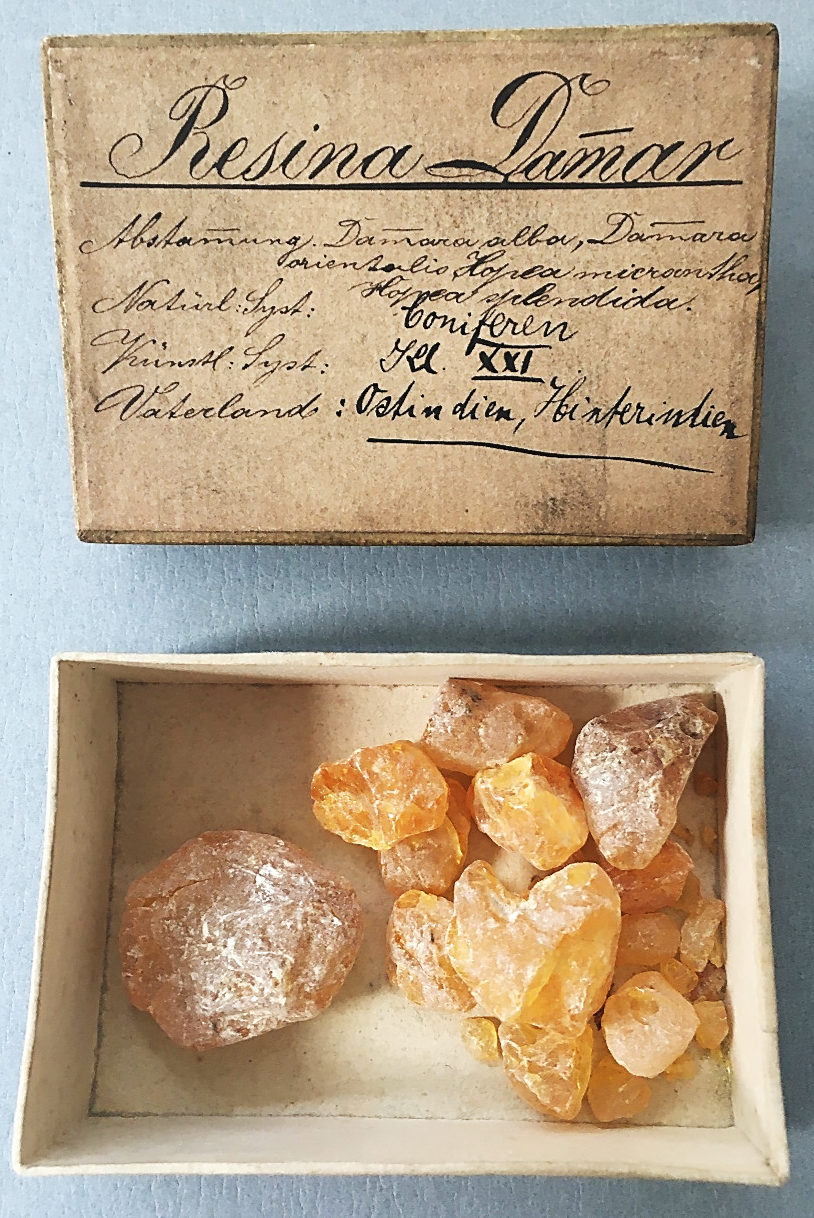 Resina Dam̄ar
Abstam̄ung. Dam̄ara alba, Dam̄ara
orientalis Hopea micrantha,
Hopea splendida.
Natürl: Syst: Coniferen
Künstl: Syst: Kl. XXI.
Vaterland: Ostindien, Hinterindien